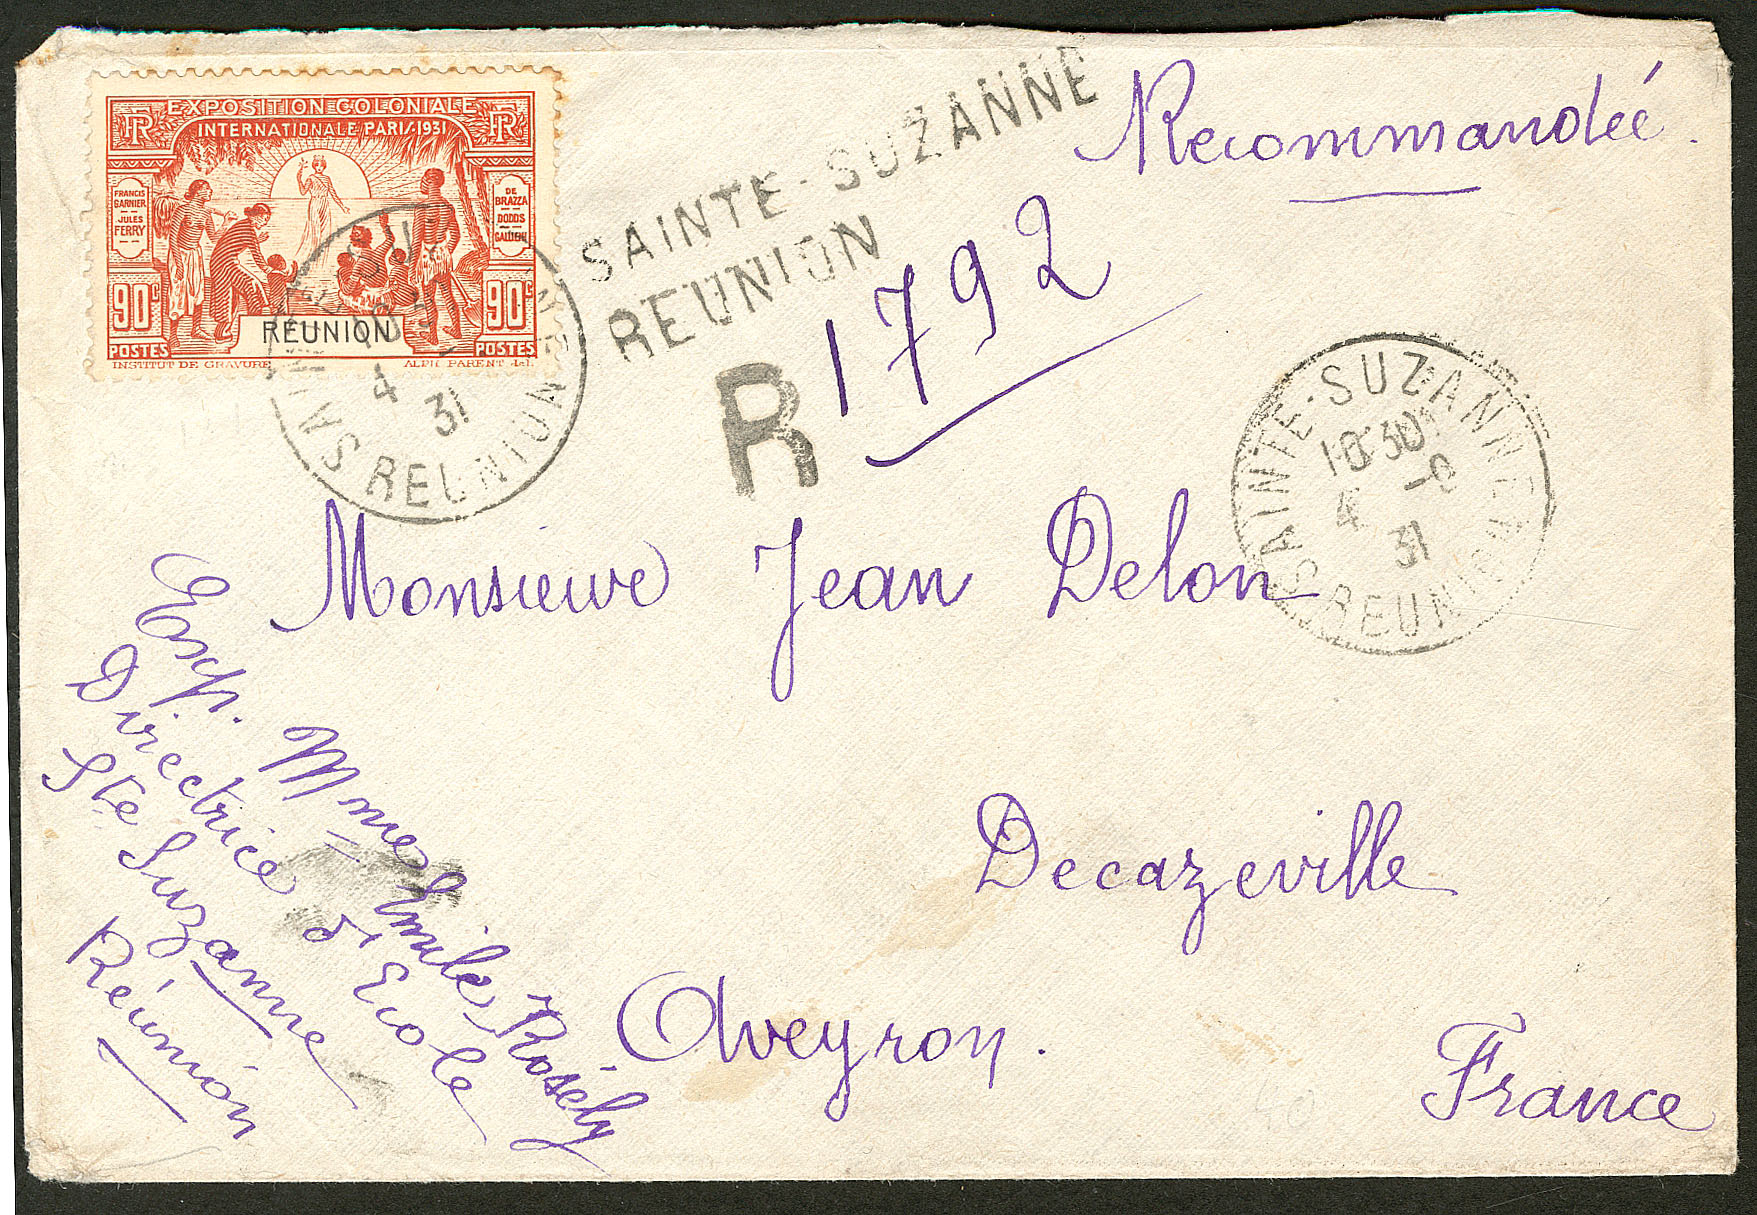 EXPOSITION COLONIALE
INTERNATIONALE PARIS 1931
RF
RF
FRANCIS
GARNIER
JULES
FERRY
DE
BRAZZA
DODDS
GALLIENI
90c
90c
RÉUNION
POSTES
POSTES
INSTITUT DE GRAVURE
ALPH. PARENT del.
SAINTE-SUZANNE
REUNION
R
1792
Recommandée.
SAINTE-SUZANNE
4
31
REUNION
SAINTE-SUZANNE
10 30
4 -9
31
REUNION
Monsieur Jean Delon
Decazeville
Aveyron.
France
Exp. Mme Emile Rosély
Directrice d'Ecole
Ste Suzanne
Réunion